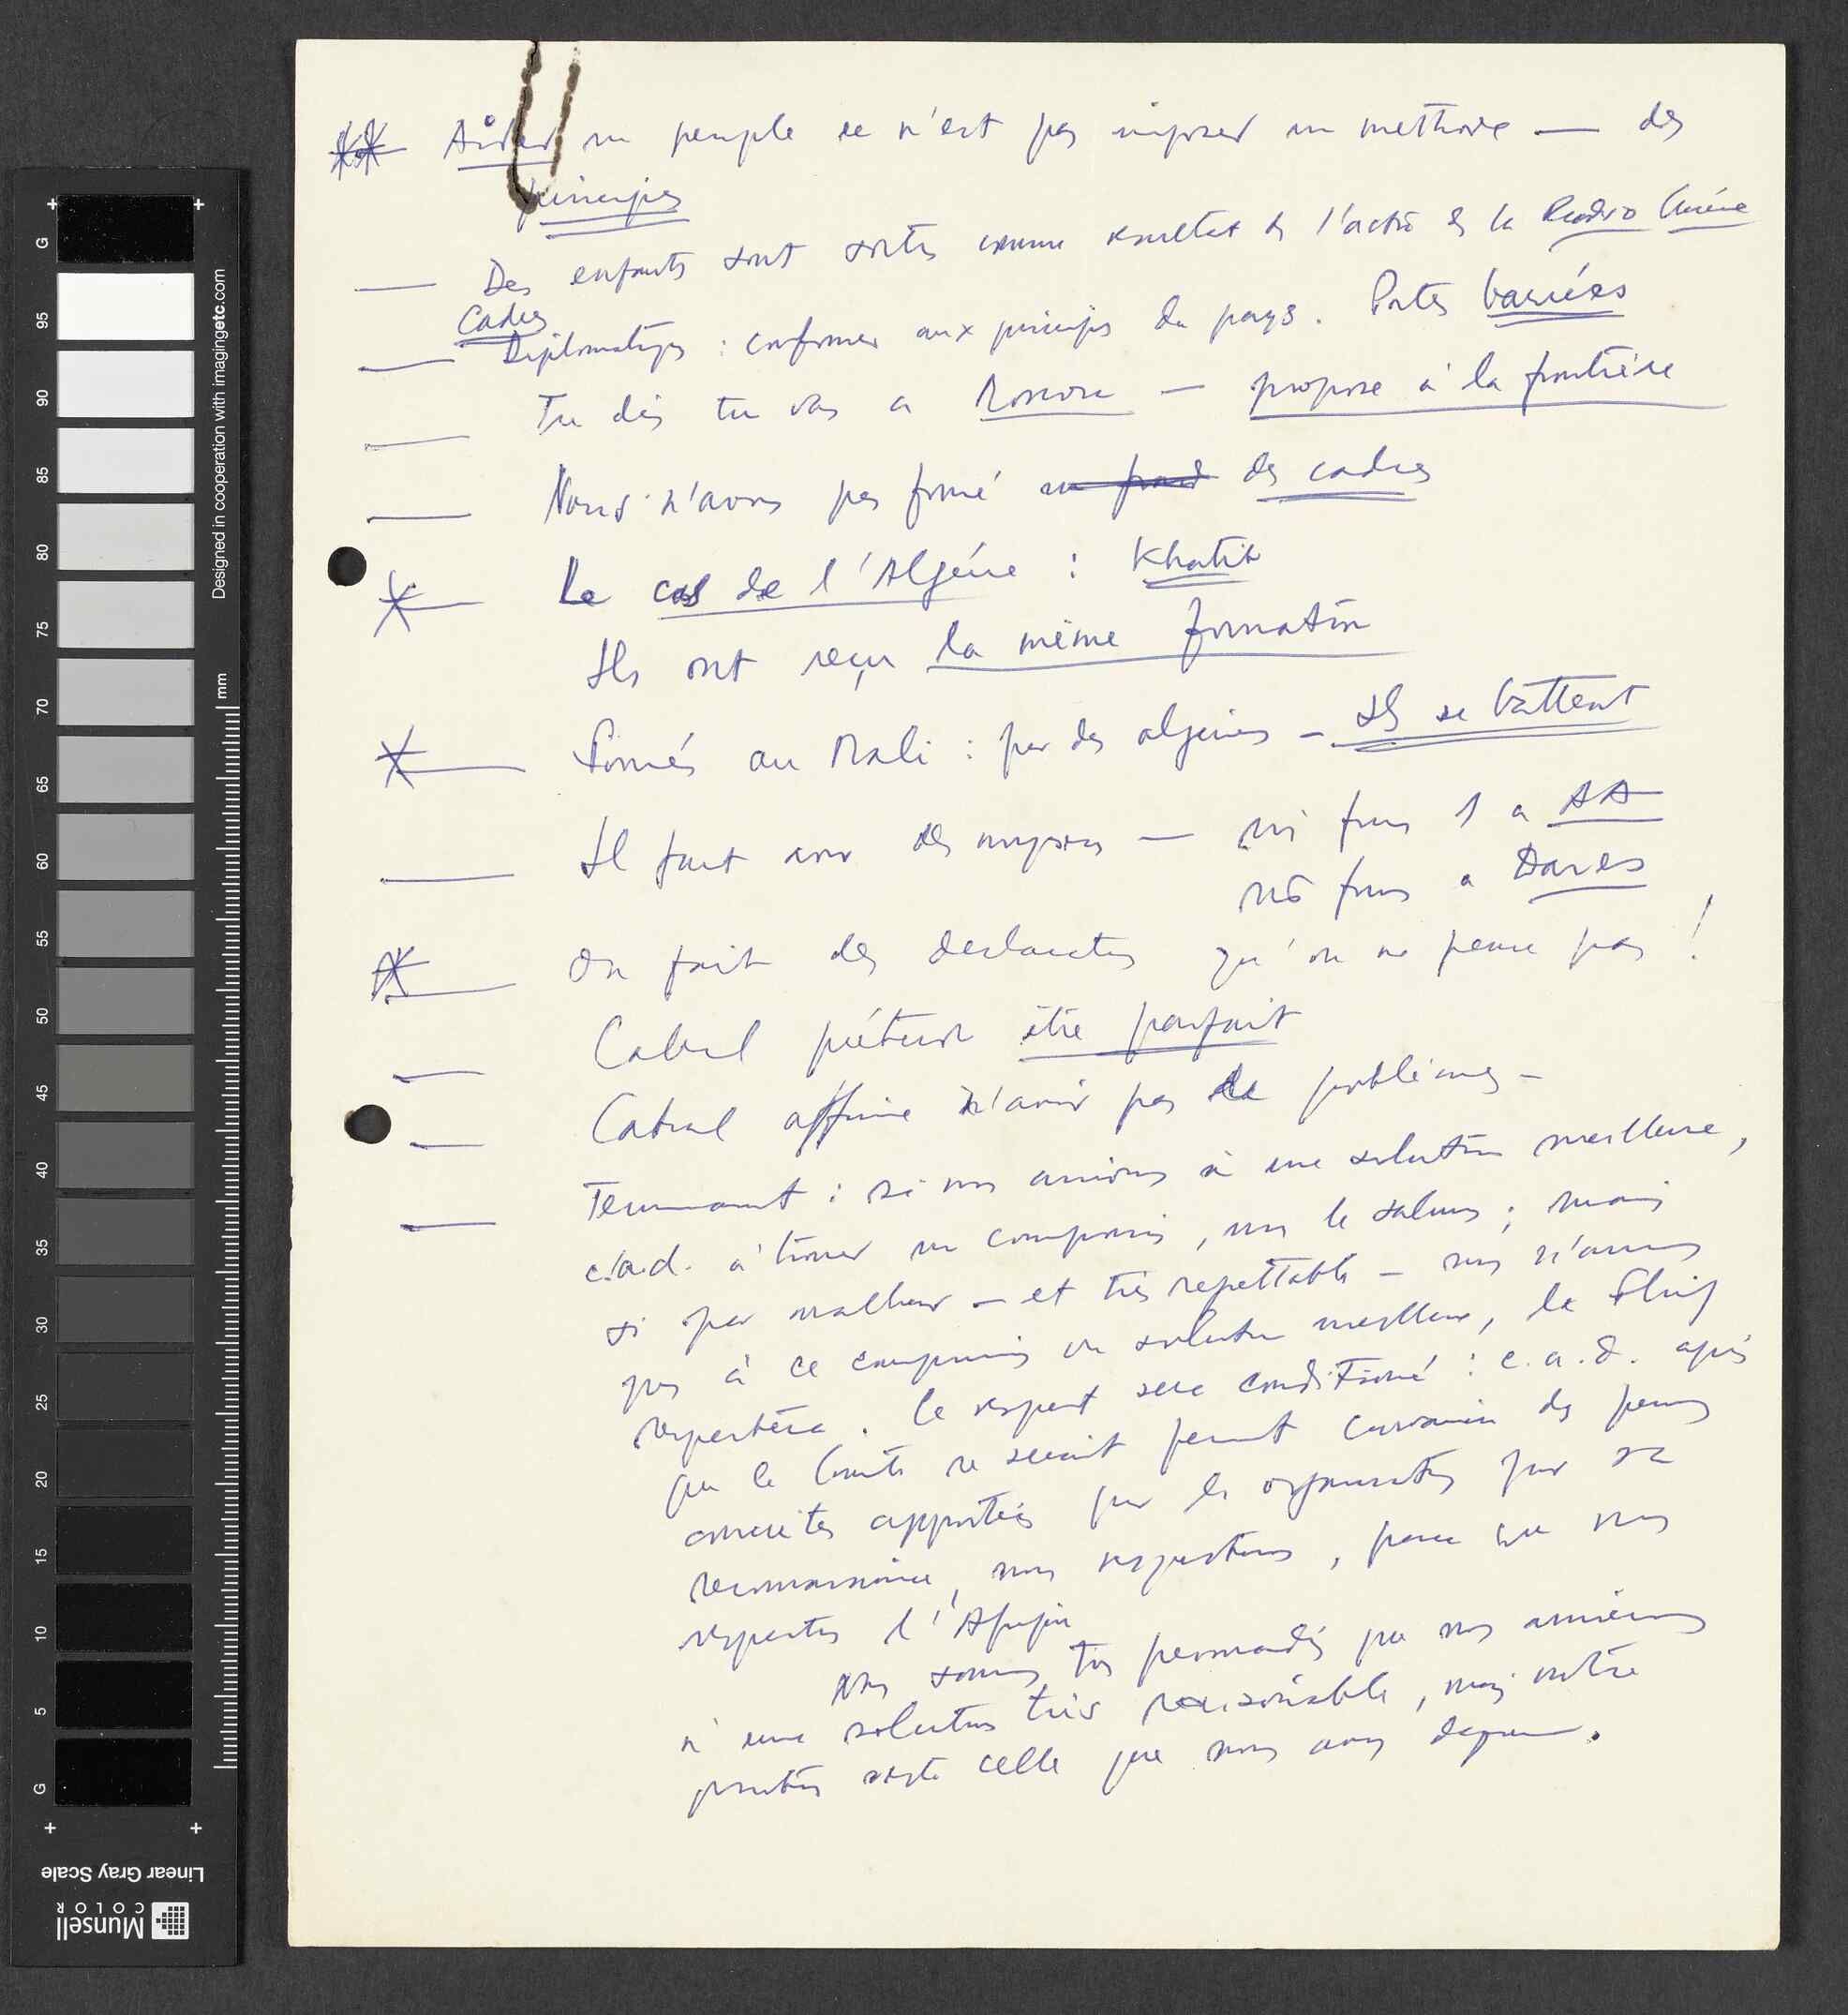 Aider un peuple ce n'est pas imposer un methode — des
principes
— Des enfants sont sortis comme resultat de l'actiō de la Radio Guinée
Cadres
— Diplomatiques : conformer aux principes du pays. Portes barrées
— Tu dis tu vas a Moscou — propose à la frontière
— Nous n'avons pas formé des cadres
Le cas de l'Algérie : Khatib
Ils ont reçu la même formation
Formés au Mali : par des algeriens — Ils se battent
— Il faut des
a AA
a Dar es
On fait des declarations qu'on ne pense pas !
— Cabral prétend être parfait
— Cabral affirme n'avoir pas de problèmes —
— Terminant : si nous arrivons à une solution meilleure,
c.a.d. à trouver un compromis, nous le saluons ; mais
si par malheur — et très regrettable — nous n'arrivons
pas à ce compromis ou solution meilleure, le Fling
respectera. Le respect sera conditionné : c.a.d. après
que le Comité se serait convaincu des preuves
concretes apportées par les organisations pour sa
reconnaissance, nous respecterons, parce que nous
respectons l'Afrique
Nous sommes tous persuadés que nous arriverons
à une solution très raisonable, mais notre
position reste celle que nous avons
G
95
90
85
80
75
70
65
60
55
50
45
40
35
30
25
20
15
10
5
G
mm
Designed in cooperation with imagingetc.com
Linear Gray Scale
Munsell
COLOR